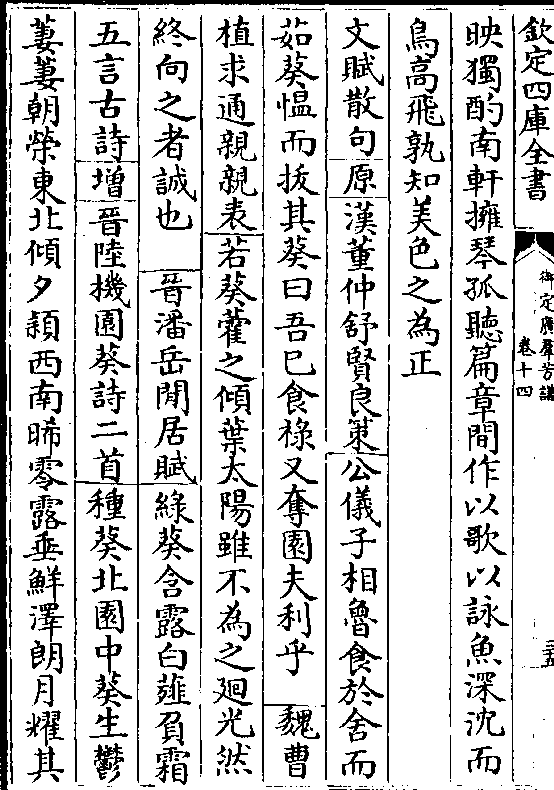 欽定四庫全書
御定廣羣芳譜
卷十四
三五
映獨酌南軒擁琴孤聽篇章間作以歌以詠魚深沈而
鳥高飛孰知美色之為正
文賦散句原漢董仲舒賢良策公儀子相魯食於舍而
茹葵慍而拔其葵曰吾已食祿又奪園夫利乎　魏曹
植求通親親表若葵藿之傾葉太陽雖不為之迴光然
終向之者誠也　晉潘岳閒居賦綠葵含露白薤負霜
五言古詩增晉陸機園葵詩二首種葵北園中葵生鬱
萋萋朝榮東北傾夕穎西南晞零露垂鮮澤朗月耀其